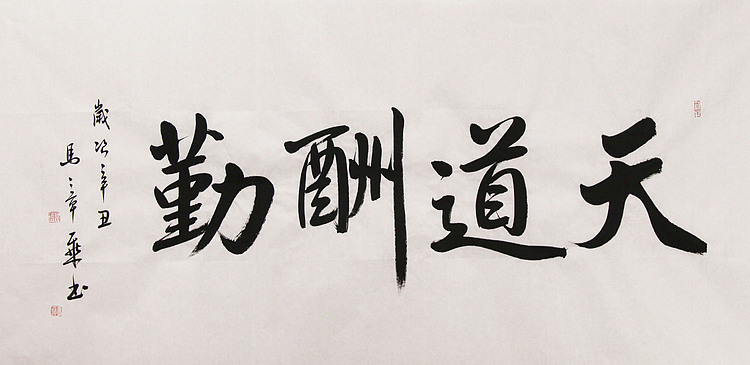 天道酬勤
歲次辛丑
馬三章乘书